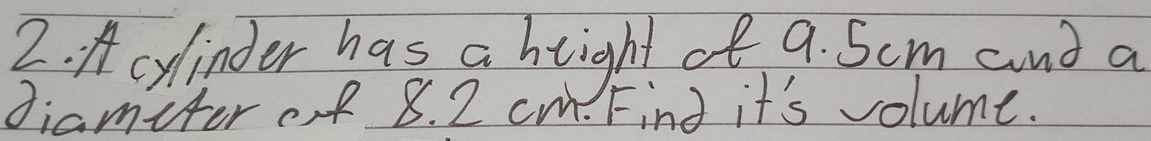 2. A cylinder has a height of 9.5cm and a
diameter of 8.2 cm. Find it's volume.